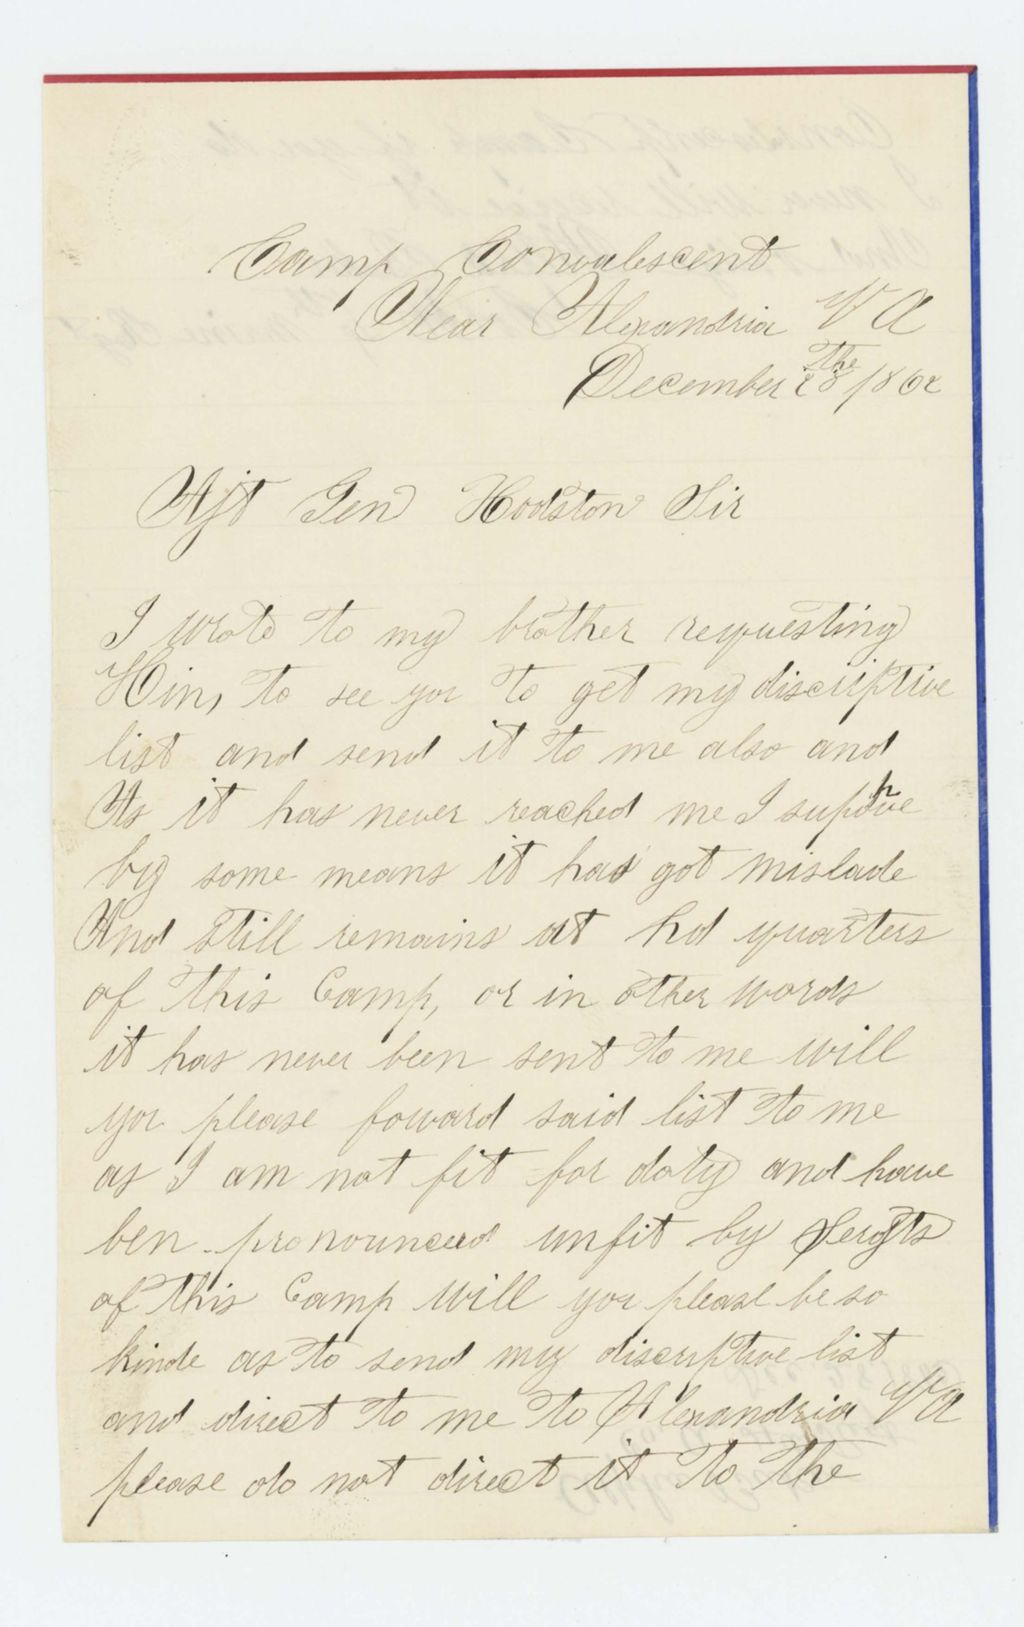 Camp Convalescent
Near Alexandria VA
December 28 the 1862
Ajt Gen Hodston Sir
I wrote to my brother requesting
Him, to see you to get my discriptive
list and send it to me also and
As it has never reached me I suppose
by some means it has got mislade
And still remains at hd quarters
of this Camp, or in other words
it has never been sent to me will
you please foward said list to me
as I am not fit for doty and have
ben pronounced unfit by Sergts
of this Camp will you please be so
kinde as to send my discriptive list
and direct to me to Alexandria VA
please do not direct it to the